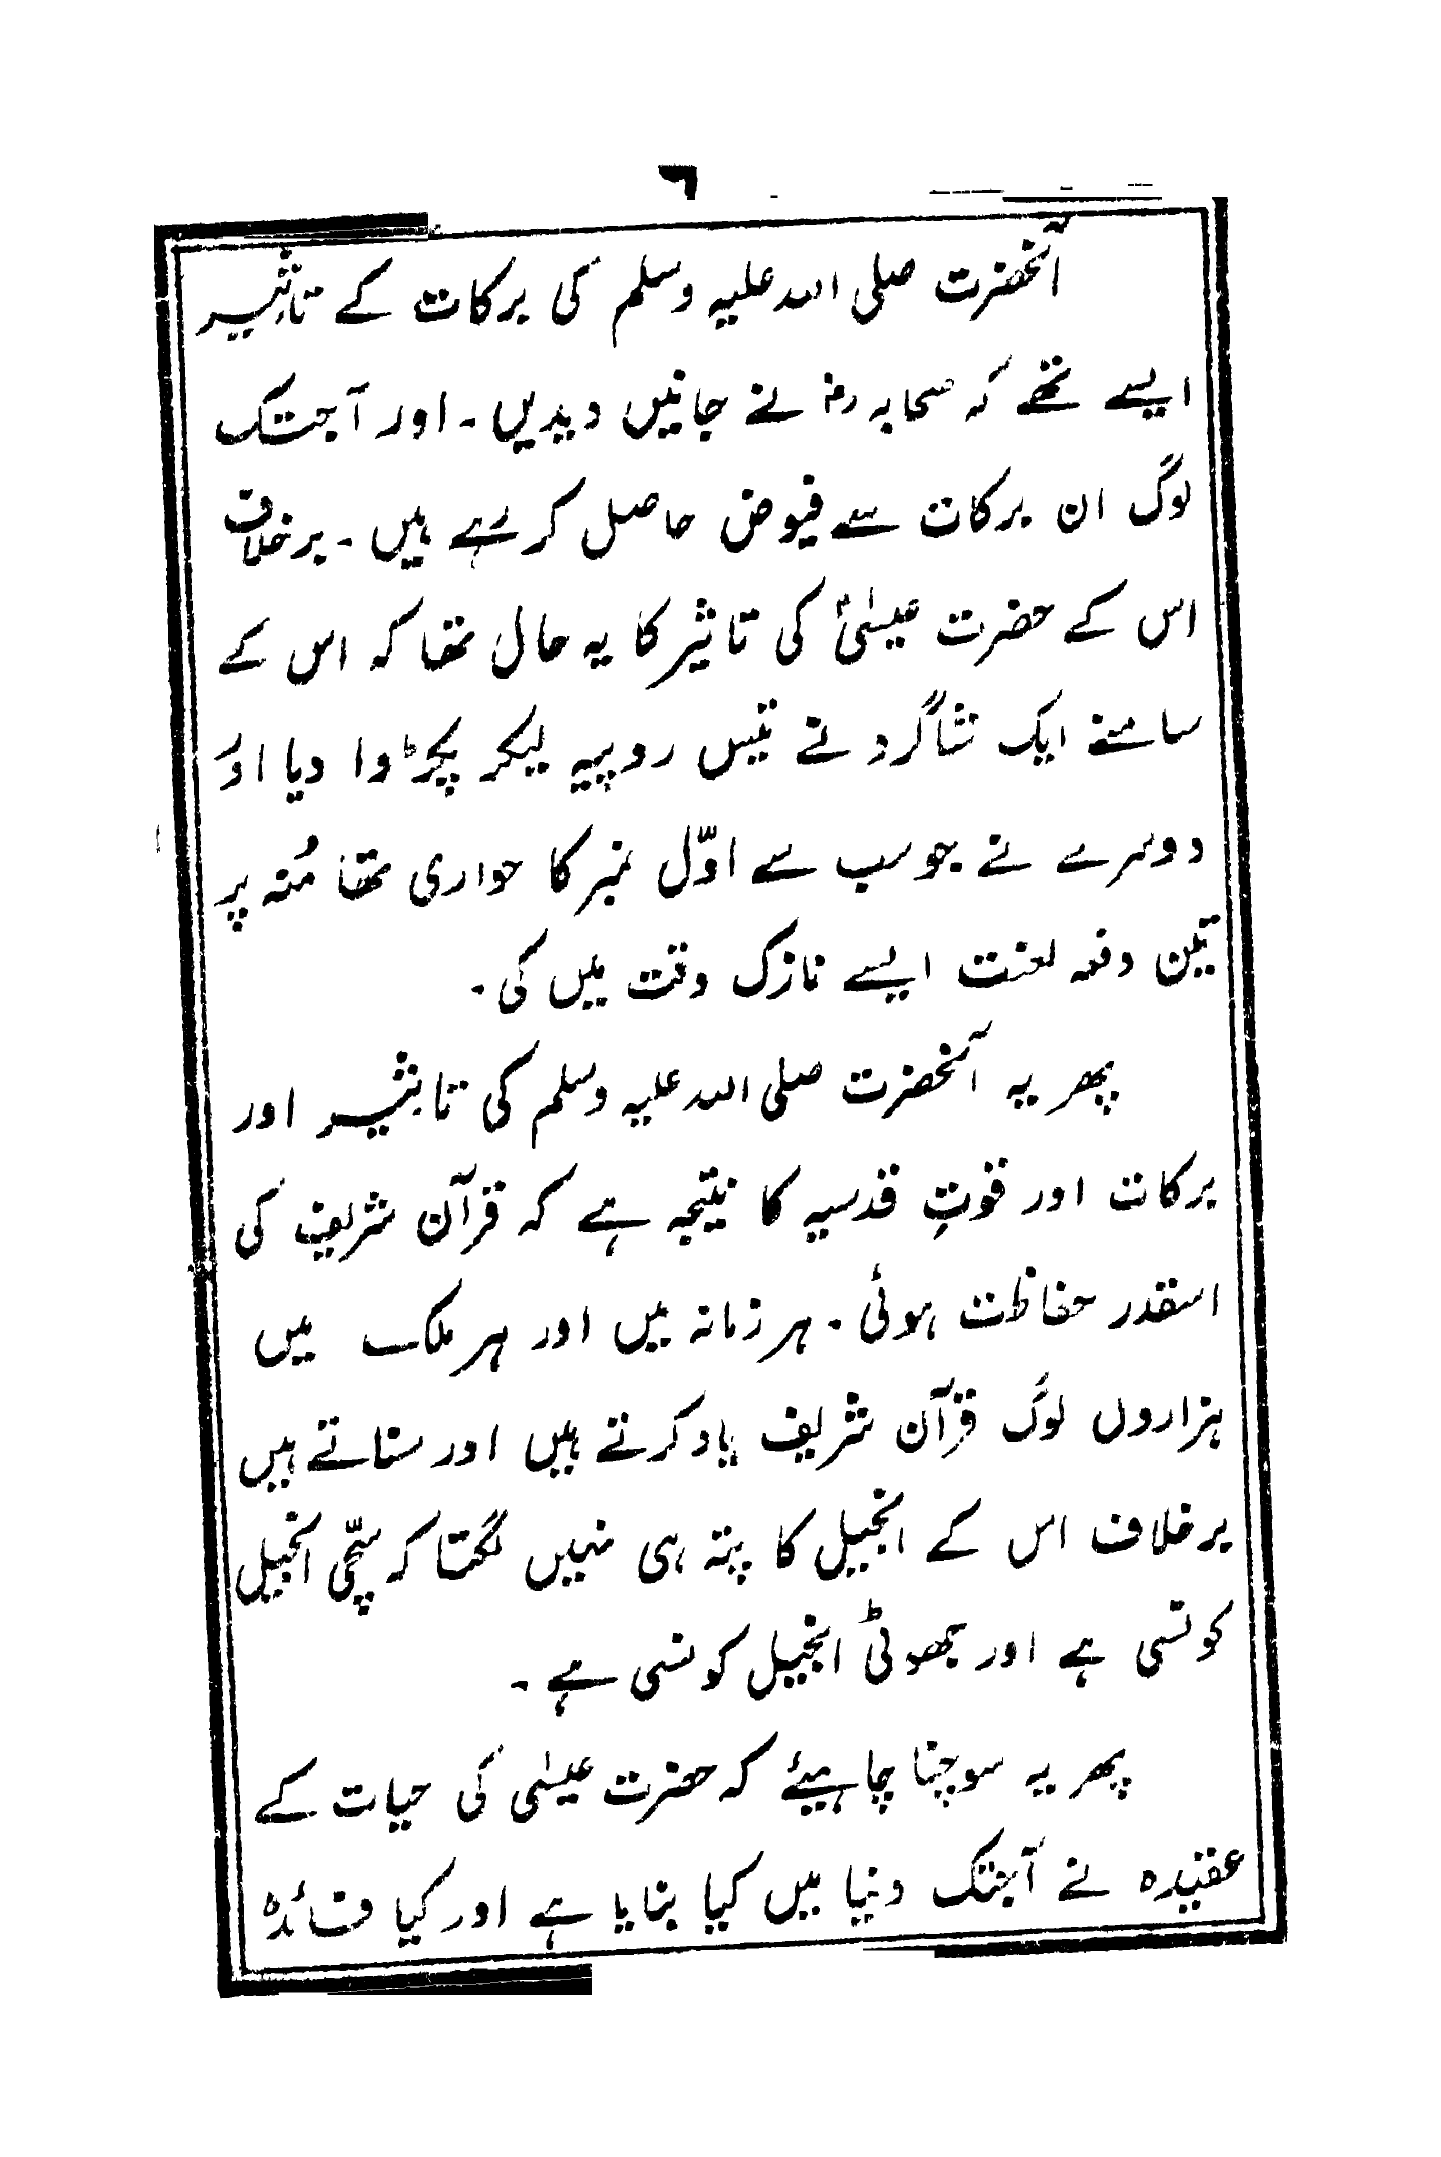 ٦
آنحضرت صلی اللہ علیہ وسلم کی برکات کے تاثیر
ایسے تھے کہ صحابہ رض نے جانیں دیدیں ۔ اور آجتک
لوگ ان برکات سے فیوض حاصل کر رہے ہیں ۔ برخلاف
اس کے حضرت عیسیٰؑ کی تاثیر کا یہ حال تھا کہ اس کے
سامنے ایک شاگرد نے تیس روپیہ لیکر پکڑوا دیا اور
دوسرے نے جو سب سے اوّل نمبر کا حواری تھا مُنہ پر
تین دفعہ لعنت ایسے نازک وقت میں کی ۔
پھر یہ آنحضرت صلی اللہ علیہ وسلم کی تاثیر اور
برکات اور قوتِ قدسیہ کا نتیجہ ہے کہ قرآن شریف کی
اسقدر حفاظت ہوئی ۔ ہر زمانہ میں اور ہر ملک میں
ہزاروں لوگ قرآن شریف یاد کرتے ہیں اور سناتے ہیں
برخلاف اس کے انجیل کا پتہ ہی نہیں لگتا کہ سچّی انجیل
کونسی ہے اور جھوٹی انجیل کونسی ہے ۔
پھر یہ سوچنا چاہیئے کہ حضرت عیسٰی کی حیات کے
عقیدہ نے آجتک دنیا میں کیا بنایا ہے اور کیا فائدہ